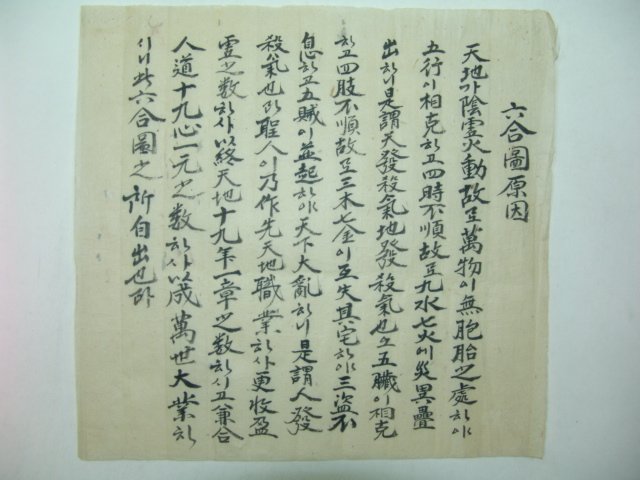 六合圖原因
天地가陰霊火動故로萬物이無胞胎之處하야
五行이相克하고四時不順故로九水七火에災異疊
出하니是謂天發殺氣地發殺氣也오五臟이相克
하고四肢不順故로三木七金이互失其宅하야三盜不
息하고五賊이並起하야天下大亂하니是謂人發
殺氣也라聖人이乃作先天地職業하사更收盈
虛之數하사以終天地十九年一章之數하시고兼合
人道十九心一元之數하사以成萬世大業하
시니此六合圖之所自出也라